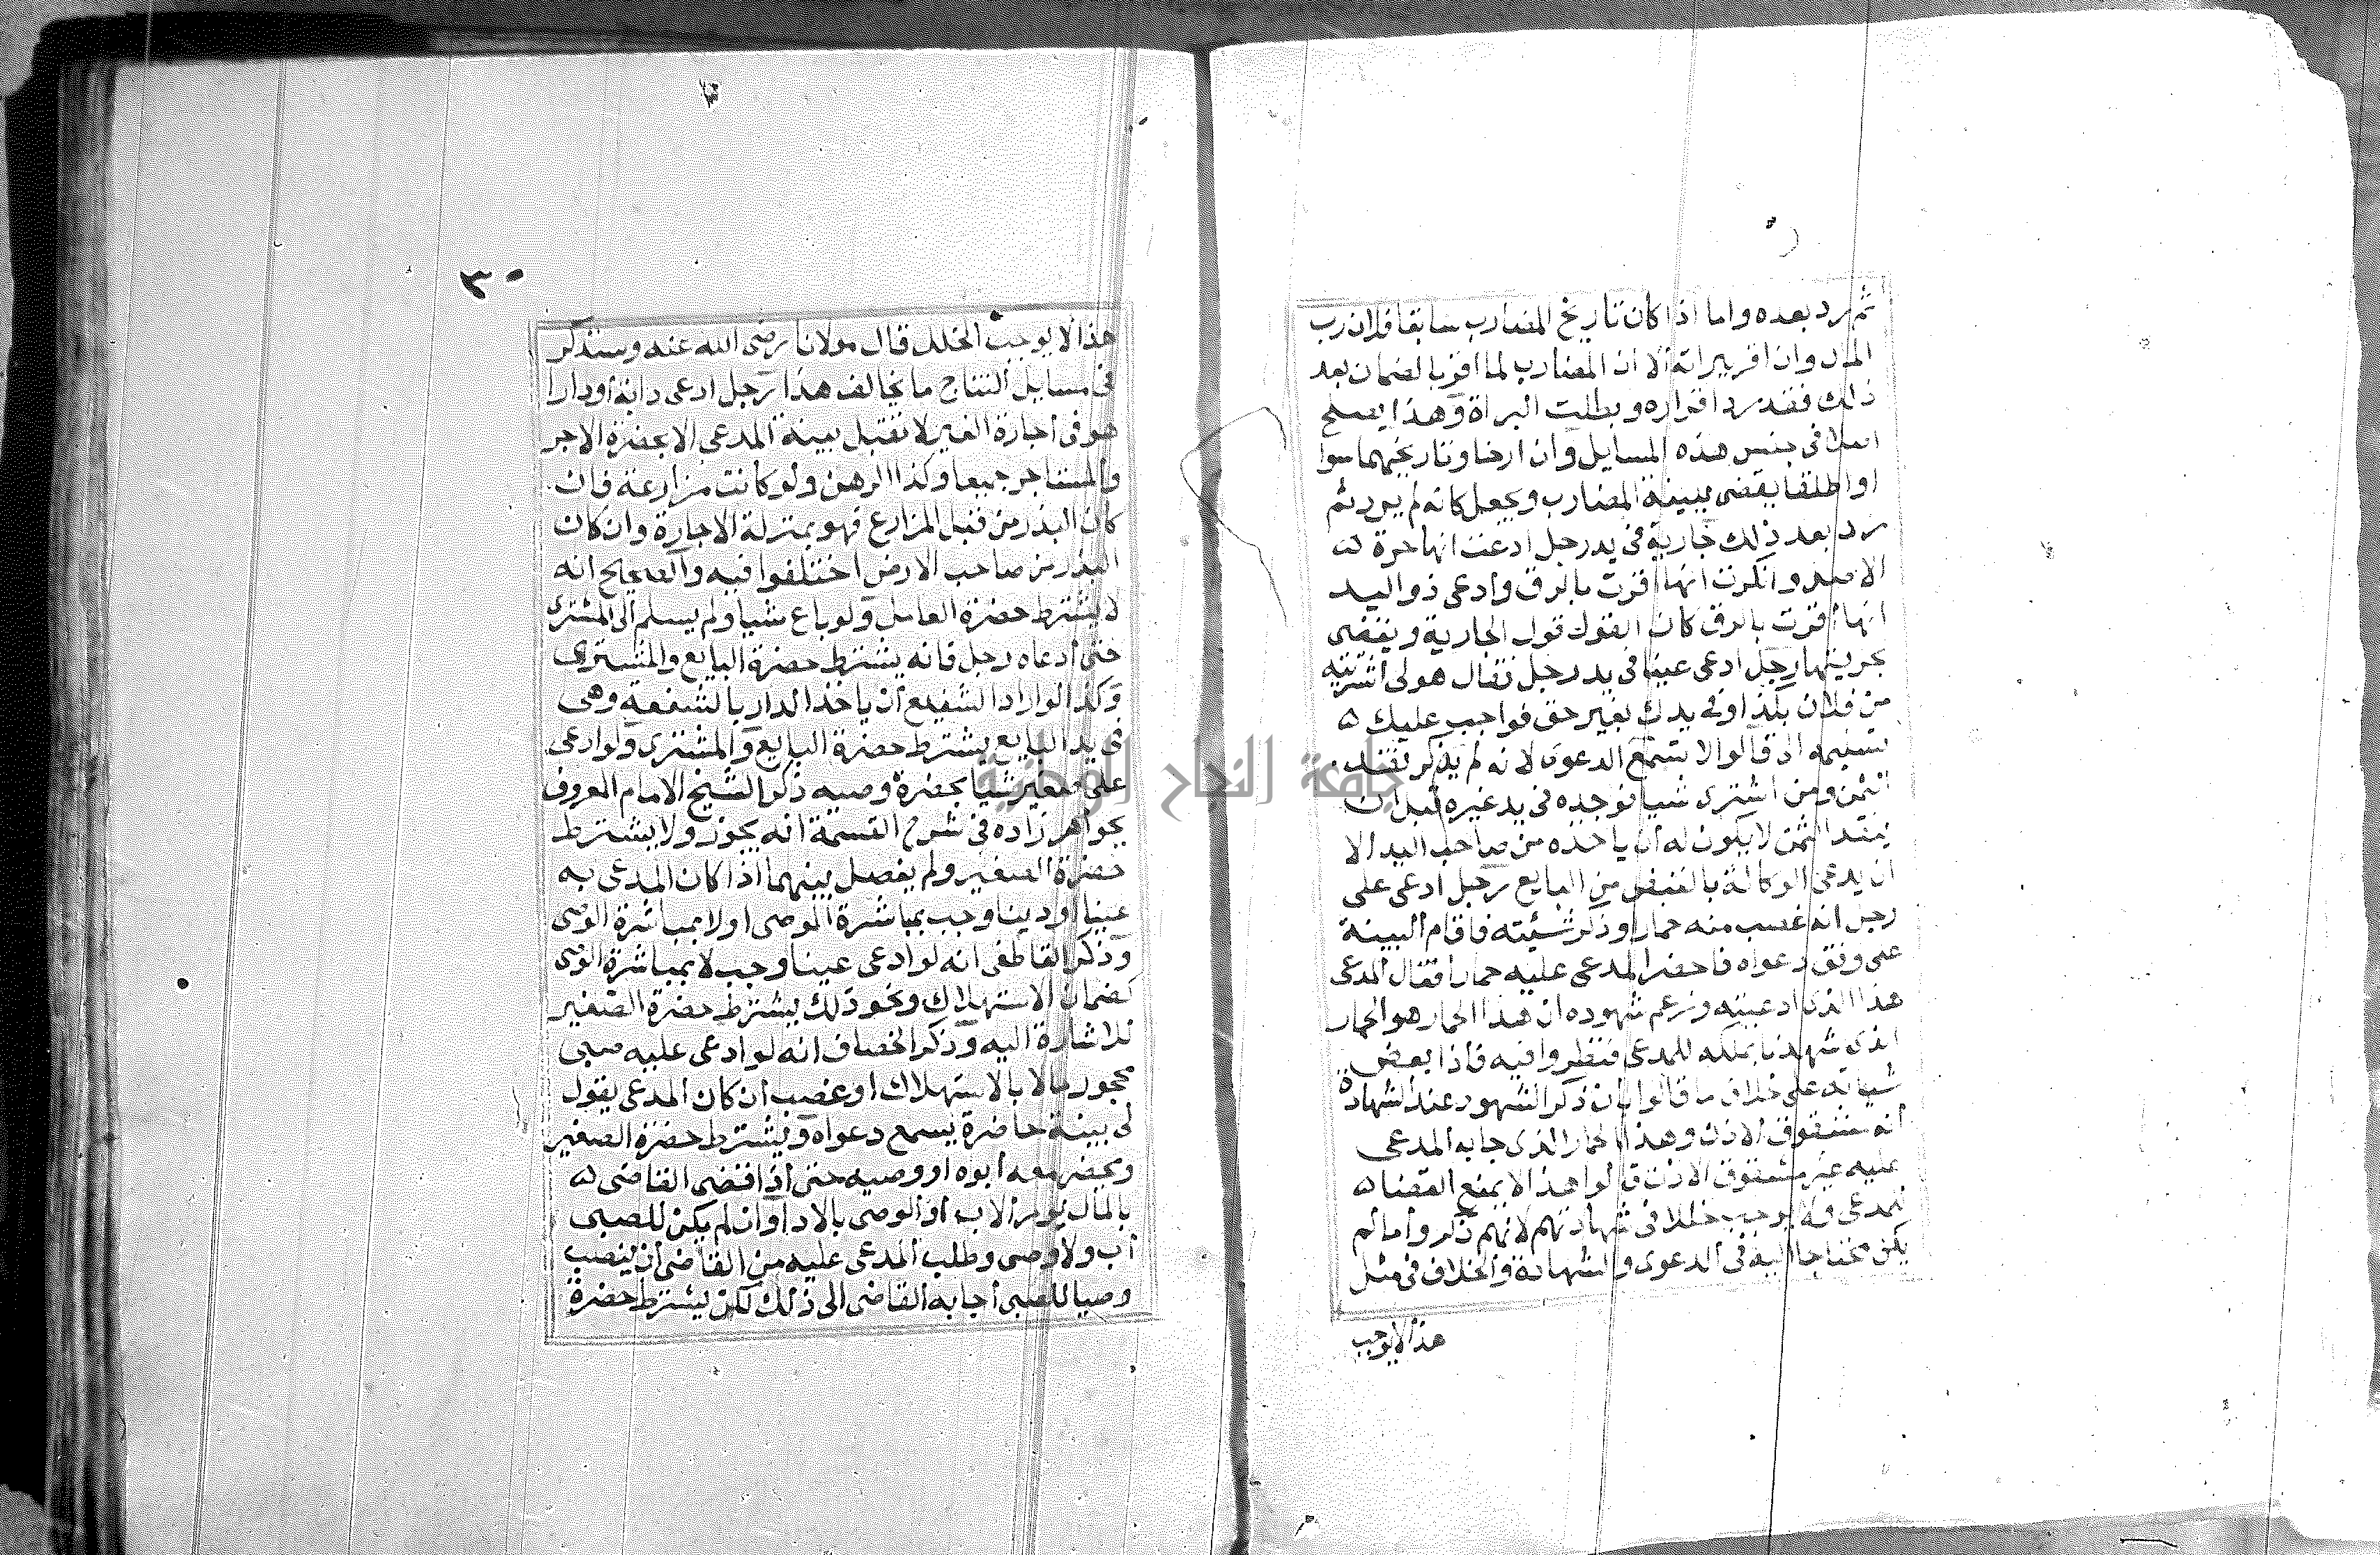 ثم رد بعده واما اذا كان تاريخ المضارب سابقا فلان رب
المال وان اقر ببراته الا ان المضارب لما اقر بالضمان بعد
ذلك فقد رد اقراره وبطلت البراة وهذا يصلح
اصلا فى جنس هذه المسايل وان ارخا وتاريخهما سوا
او اطلقا يقضى ببينة المضارب ويجعل كانه لم يرد ثم
رد بعد ذلك جارية فى يد رجل ادعت انها حرة
الاصل وانكرت انها اقرت بالرق وادعى ذو اليد
انها اقرت بالرق كان القول قول الجارية ويقضى
بحريتها رجل ادعى عينا فى يد رجل فقال هو لى اشتريته
من فلان بكذا وفى يدك بغير حق فواجب عليك
تسليمه الى قالوا لا تسمع الدعوى لانه لم يذكر نقد
الثمن ومن اشترى شيا فوجده فى يد غيره قبل ان
ينقد الثمن لا يكون له ان ياخذه من صاحب اليد الا
ان يدعى الوكالة بالقبض من البايع رجل ادعى على
رجل انه غصب منه حمارا وذكر شيته فاقام البينة
على وفق دعواه فاحضر المدعى عليه حمارا فقال المدعى
هذا الذى ادعيته وزعم شهوده ان هذا الحمار هو الحمار
الذى شهدنا بملكه للمدعى فنظروا فيه فاذا بعض
شياته على خلاف ما قالوا بان ذكر الشهود عند الشهادة
انه مشقوق الاذن وهذا الحمار الذى جا به المدعى
عليه غير مشقوق الاذن قالوا هذا لا يمنع القضا
للمدعى ولا يوجب خللا فى شهادتهم لانهم ذكروا ما لم
يكن محتاجا اليه فى الدعوى والشهادة والخلاف فى مثل
هذا لا يوجب
٣٠
هذا لا يوجب الخلل قال مولانا رضى الله عنه وسنذكر
فى مسايل النتاج ما يخالف هذا رجل ادعى دابة او دارا
هو فى اجارة الغير لا تقبل بينة المدعى الا بحضرة الاجر
والمستاجر جميعا وكذا الرهن ولو كانت مزارعة فان
كان البذر من قبل المزارع فهو بمنزلة الاجارة وان كان
البذر من صاحب الارض اختلفوا فيه والصحيح انه
لا يشترط حضرة العامل ولو باع شيا ولم يسلم الى المشترى
حتى ادعاه رجل فانه يشترط حضرة البايع والمشترى
وكذا لو اراد الشفيع ان ياخذ الدار بالشفعة وهى
فى يد البايع يشترط حضرة البايع والمشترى ولو ادعى
على صغير شيا بحضرة وصيه ذكر الشيخ الامام المعروف
بجواهر زاده فى شرح القسمة انه يجوز ولا يشترط
حضرة الصغير ولم يفصل بينهما اذا كان المدعى به
عينا او دينا وجب بمباشرة الموصى اولا بمباشرة الوصى
وذكر القاطفى انه لو ادعى عينا وجب لا بمباشرة الوصى
كضمان الاستهلاك ونحو ذلك يشترط حضرة الصغير
للاشارة اليه وذكر الخصاف انه لو ادعى عليه صبى
محجور مالا بالاستهلاك او غصب ان كان المدعى يقول
لى بينة حاضرة يسمع دعواه ويشترط حضرة الصغير
ويحضر معه ابوه او وصيه حتى اذا قضى القاضى
بالمال يومر الاب او الوصى بالادا وان لم يكن للصبى
اب ولا وصى وطلب المدعى عليه من القاضى ان ينصب
وصيا للصبى اجابه القاضى الى ذلك لكن يشترط حضرة
جامعة النجاح الوطنية